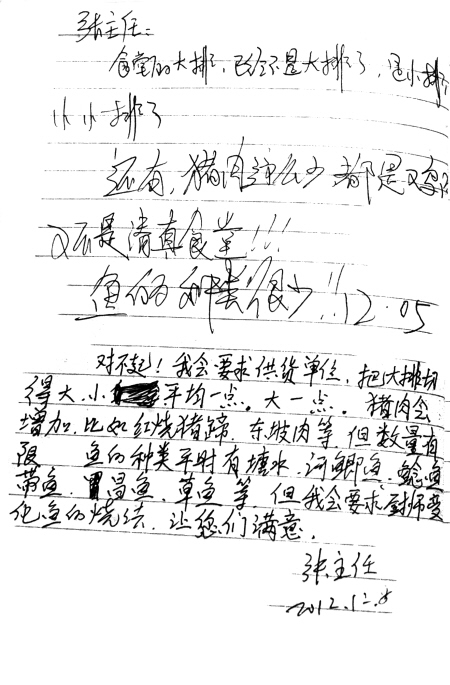 张主任：
食堂的大排，已经不是大排了，是小排
小小排了
还有，猪肉这么少 都是鸡
又不是清真食堂!!!
鱼的种类很少!! 12.05
对不起！我会要求供货单位，把大排切
得大、小平均一点。大一点。猪肉会
增加，比如红烧猪蹄，东坡肉等，但数量有
限 鱼的种类平时有塘水、河鲫鱼、鲶鱼
带鱼、昌鱼、草鱼等 但我会要求厨师变
化鱼的烧法，让您们满意。
张主任
2012.12.8